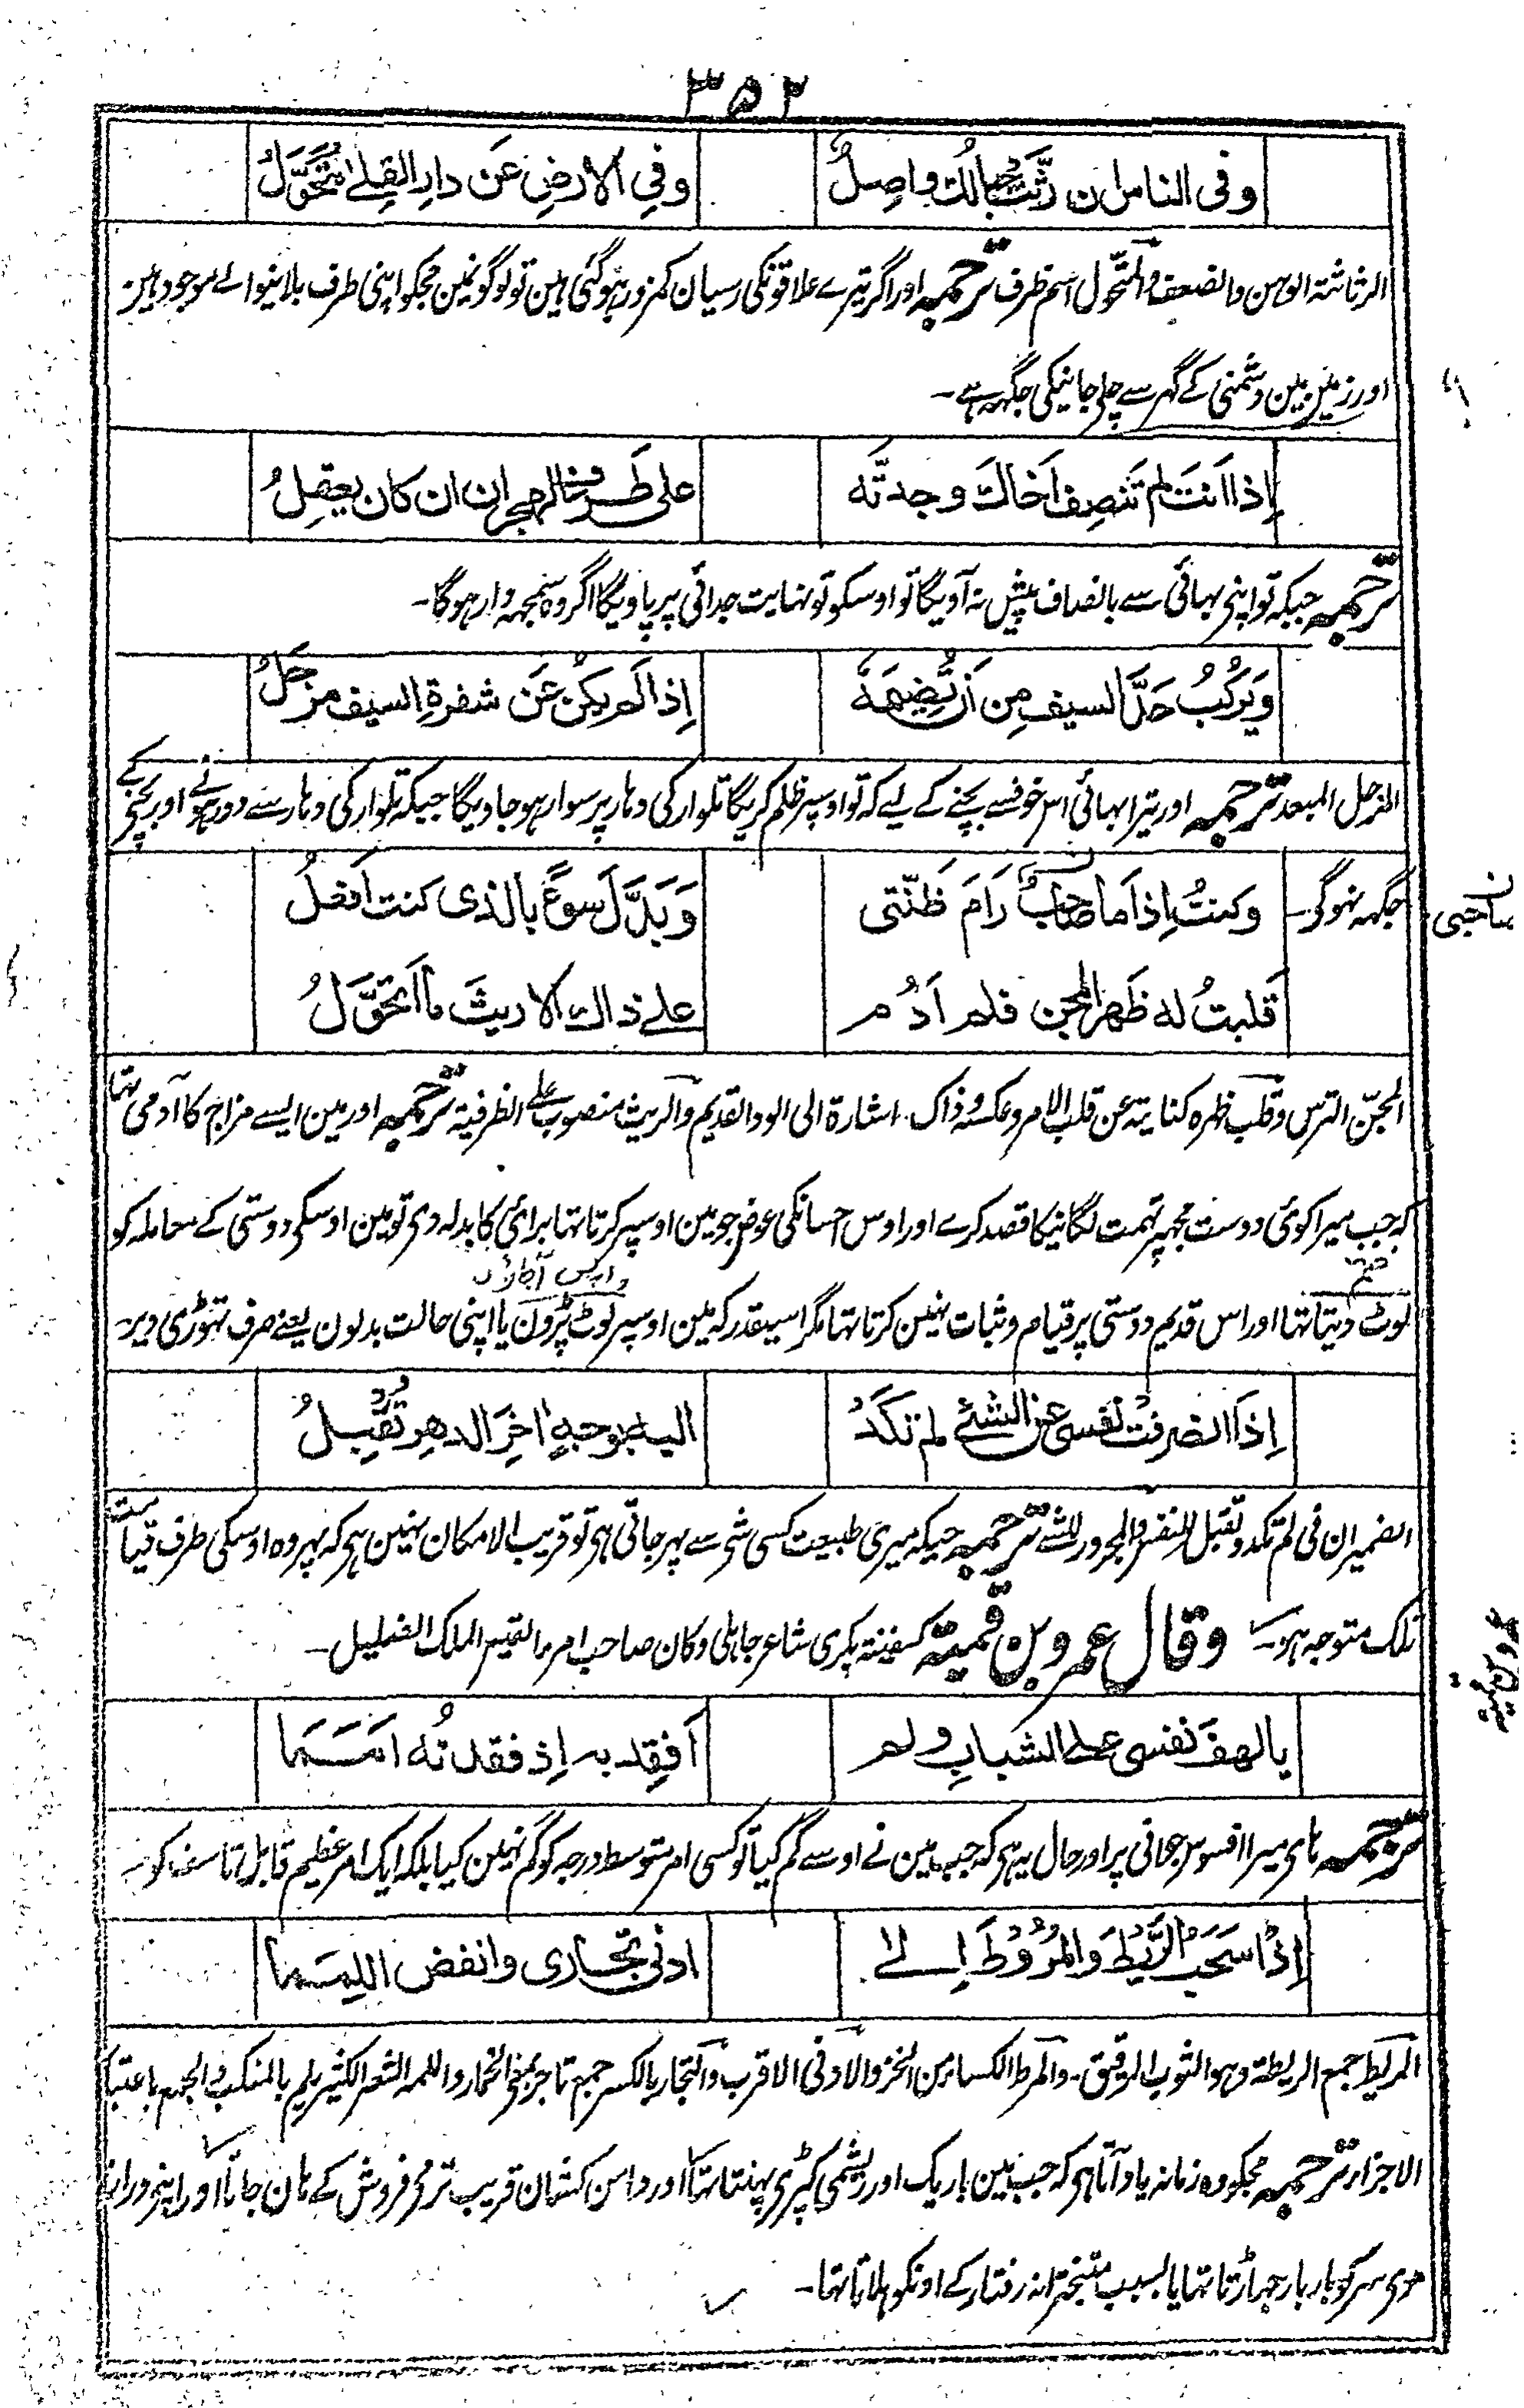 ۳۵۲
وفی الناس ان رثّت حبالُك واصلٌ وفِی الارضِ عَن دارِ القِلےٰ متحوَّلُ
الرثاثتہ الوہن والضعف والمتحّول اسم ظرف ترجمہ اور اگر تیرے علاقونکی رسیان کمزور ہوگئی ہین تو لوگونمین مجکو اپنی طرف بلانیوالے موجود ہین
اور زمین مین دشمنی کے گہر سے چلی جانیکی جگہہ ہے۔
اِذا اَنتَ لم تَنصِف اَخاكَ وجدتَّه علی طَرَف الہجران ان کان یعقِلُ
ترجمہ جبکہ تو اپنی بہائی سے بانصاف پیش نہ آویگا تو اوسکو تو نہایت جدائی پر پاویگا اگر وہ سمجہہ وار ہوگا۔
وَیَرکَبُ حَدَّ السیفِ مِن اَن تُضِیمَهٗ اِذا لم یکن عَن شفرةِ السیف مزحَلُ
المزحل المبعد ترجمہ اور تیرا بہائی اس خوفسے بچنے کے لیے کہ تو اوسپر ظلم کریگا تلوار کی دہار پر سوار ہوجاویگا جبکہ تلوار کی دہار سے دور ہونے اور بچنے کے
جگہہ نہوگی۔ وکنتُ اِذا ما صاحبٌ رَامَ ظَنّتی وَبَدَّلَ سوءً بالذی کنت اَفعلُ
صاحبی
قلبتُ له ظَهرَ المجن فلم اَدُم علےٰ ذاك الا ریثَ ما اَتحوَّلُ
المجنّ الترس وقلب ظہرہ کنایتہ عن قلب الامر وعکسہ وذاک اشارة الی الود القدیم والریث منصوب علی الظرفیۃ ترجمہ اور مین ایسے مزاج کا آدمی تہا
کہ جب میرا کوئی دوست مجہپر تہمت لگانیکا قصد کرے اور اوس احسانکی عوض جو مین اوسپر کرتا تہا برائی کا بدلہ دی تو مین اوسکی دوستی کے معاملہ کو
واپس آجاؤں
لوٹ دیتا تہا اور اس قدیم دوستی پر قیام وثبات نہین کرتا تہا مگر اسیقدر کہ مین اوسپر لوٹ پڑون یا اپنی حالت بدلون یعنے صرف تہوڑی دیر۔
اِذَا انصرفت نفسی عن الشئے لم تکَدُ الیه بوجهٍ اٰخِرَ الدهرِ تُقبِلُ
الضمیران فی لم تکد وتقبل للنفس والمجرور للشے ترجمہ جبکہ میری طبیعت کسی شی سے پہر جاتی ہی تو قریب الامکان نہین ہی کہ پہر وہ اوسکی طرف قیامت
تلک متوجہ ہو۔ وقال عمرو بن قمیئۃ کسفینۃ بکری شاعر جاہلی وکان صاحب امرء القیس الملک الضلیل۔
عمرو بن قمیئۃ
یا لهفَ نفسی علی الشبابِ ولم اَفقِد به اِذ فقدتُه اَمَمَا
ترجمہ ہای میرا افسوس جوانی پر اور حال یہ ہی کہ جب مین نے اوسے گم کیا تو کسی امر متوسط درجہ کو گم نہین کیا بلکہ ایک امر عظیم قابل تاسف کو۔
اِذ اَسحَبُ الرَّیطَ وَالمُرُوطَ اِلےٰ ادنی تِجاری وانفض اللِمَما
الریط جمع الریطۃ وہو الثوب الرقیق۔ والمرط الکساء من الخز والادنی الاقرب والتجار بالکسر جمع تاجر بمعنی الخمار واللمہ الشعر الکثیر یلم بالمنکب والجمع باعتبار
الاجزاء ترجمہ مجکو وہ زمانہ یاد آتا ہی کہ جب مین باریک اور ریشمی کپڑی پہنتا تہا اور دامن کشان قریب تر می فروش کے ہان جاتا اور اپنی دراز
موی سر کو بار بار جہاڑتا تہا یا بسبب متبخترانہ رفتار کے اونکو ہلاتا تہا۔